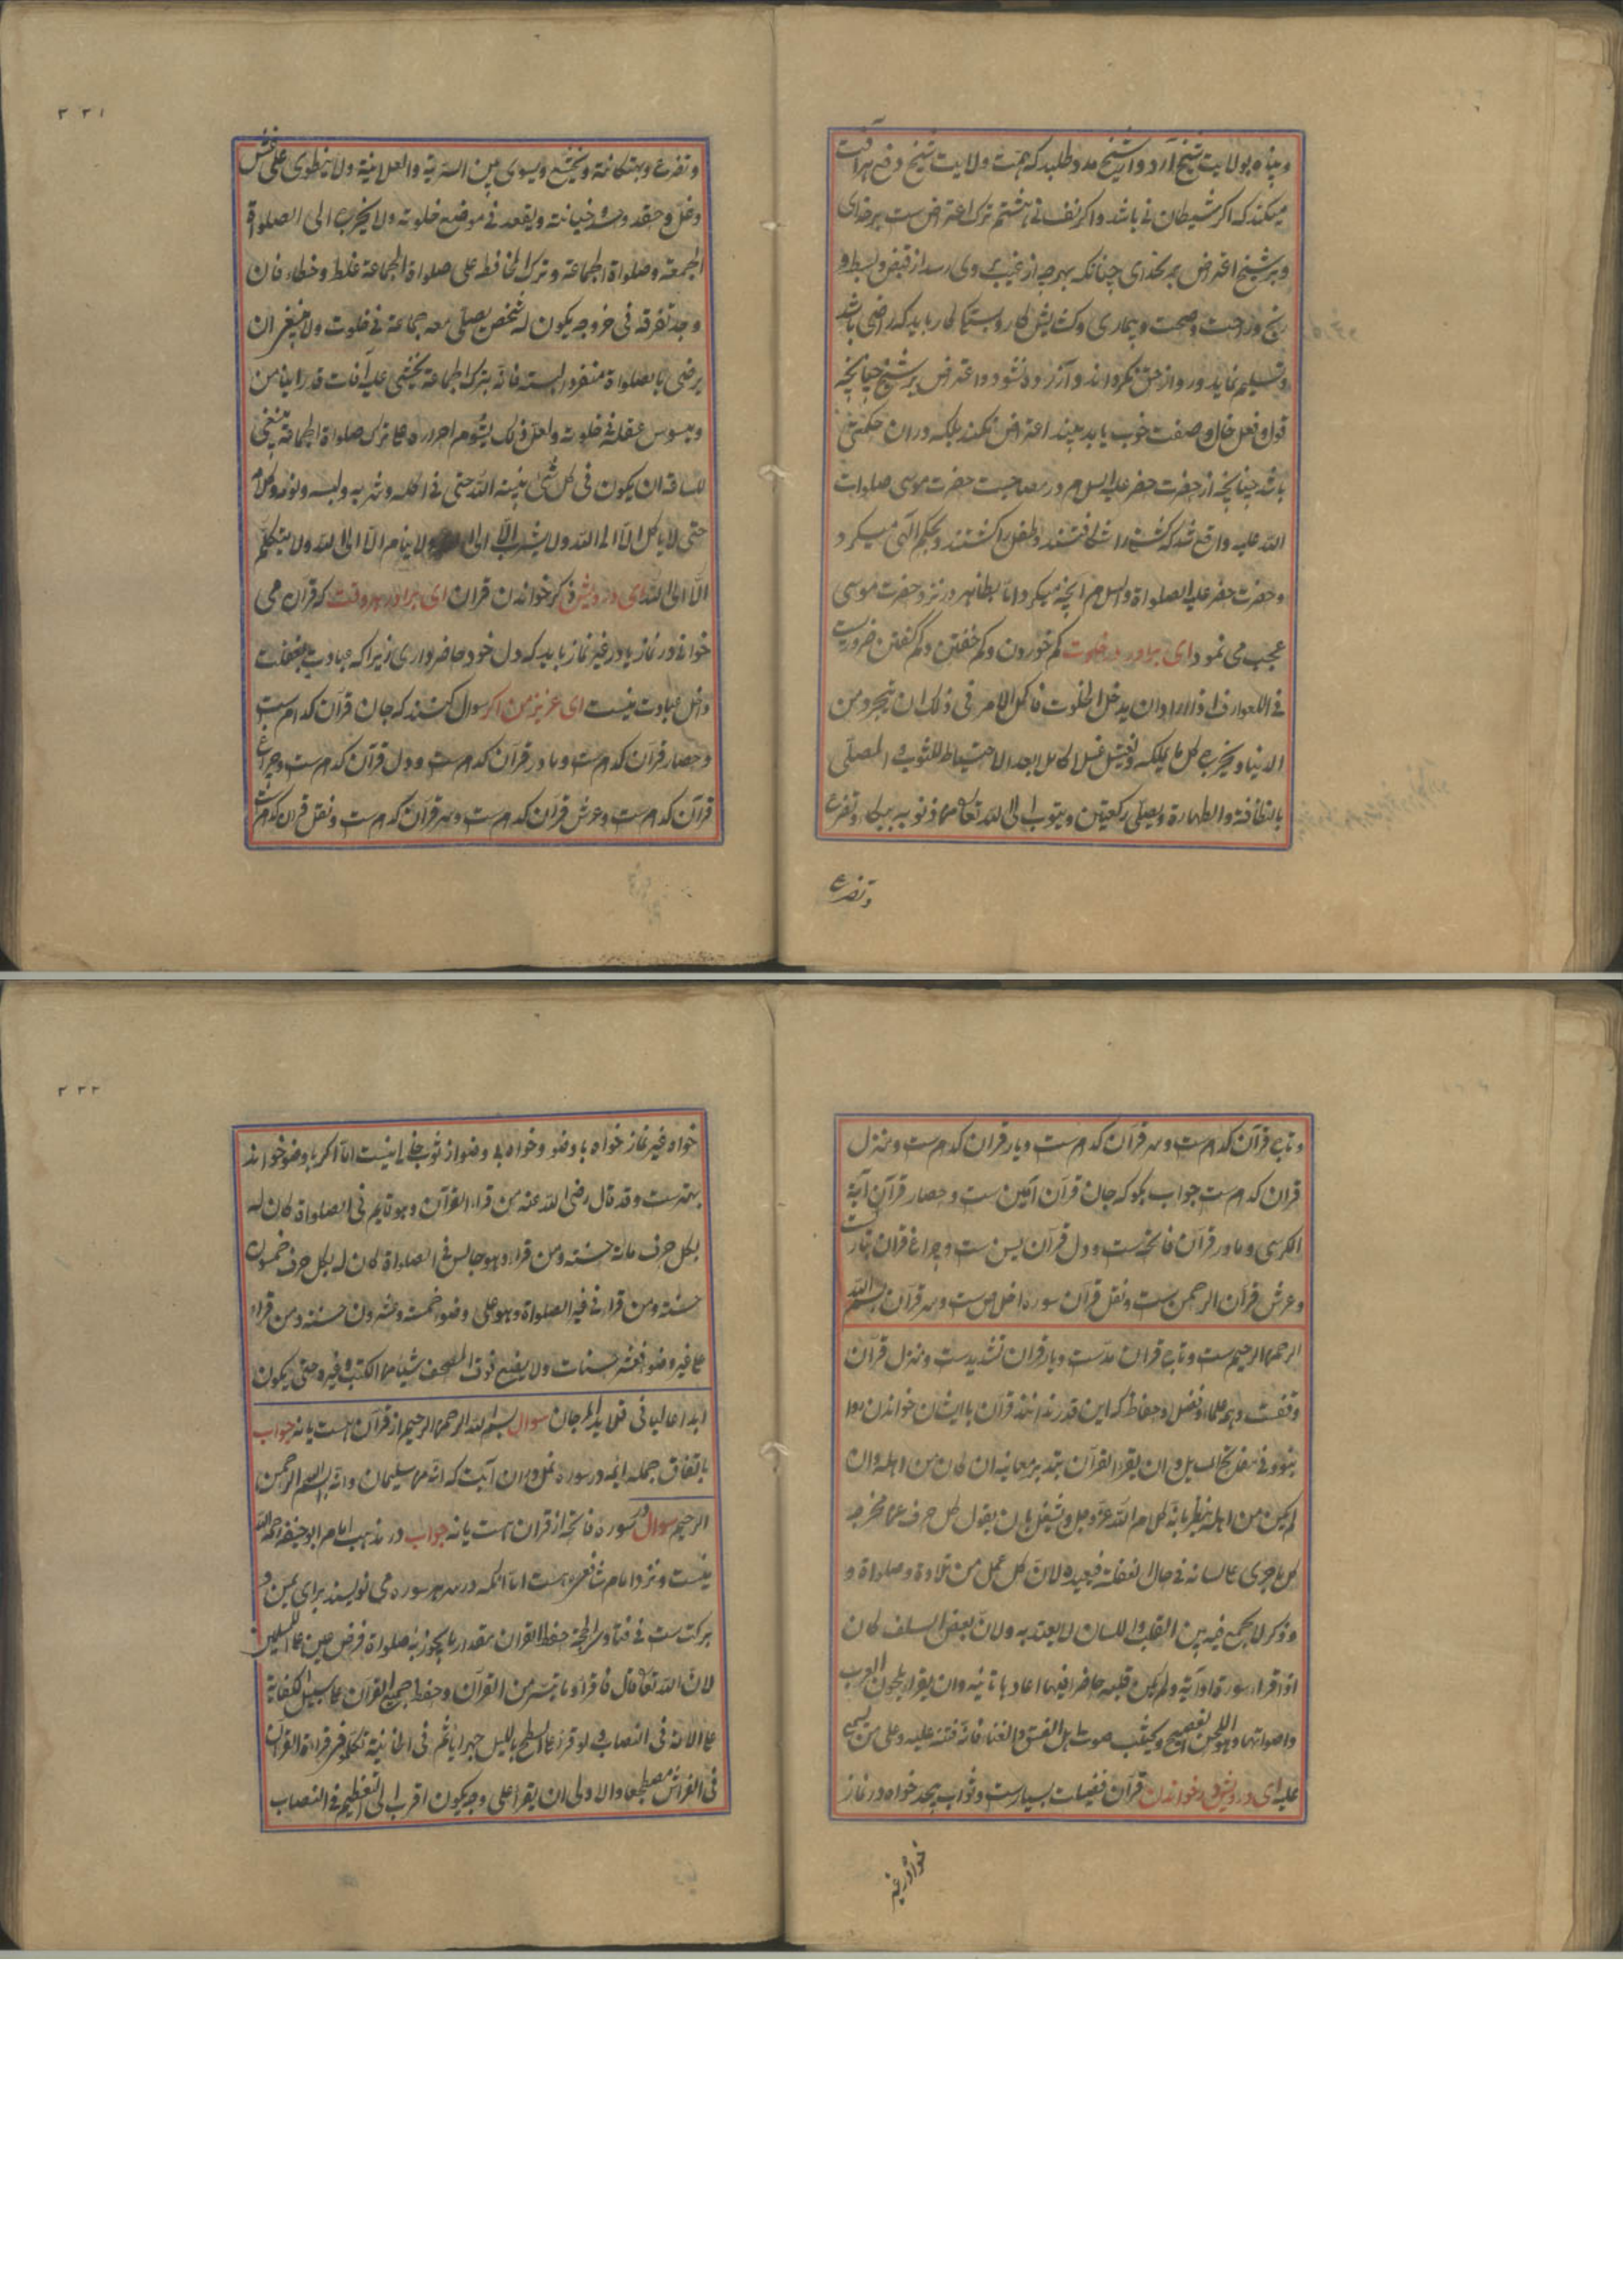 و پناه بولایت شیخ آرد و از شیخ مدد طلبد که همت ولایت شیخ دفع هر آفت
میکند که اگر شیطانی باشد و اگر نفسانی هشتم ترک اعتراض ست بر خدای
و بر شیخ اعتراض بر خدای چنانکه بهرچه از غیب بر وی رسد از قبض و بسط و
رنج و راحت و صحت و بیماری و کشایش کار و بستگی کار باید که راضی باشد
و تسلیم نماید و رو از حق نگرداند و آزرده نشود و اعتراض بر شیخ چنانچه
قول و فعل حال و صفت خوب یا بد بیند اعتراض نکند بلکه در ان حکمتی
باشد چنانچه از حضرت خضر علیه السلام در مصاحبت حضرت موسی صلوات
الله علیه واقع شد که کشتی را شکافتند و طفل را کشتند و بحکم الهی میکرد
و حضرت خضر علیه الصلواة والسلام آنچه میکرد اما بظاهر در نزد حضرت موسی
عجب می نمود ای برادر در خلوت کم خوردن و کم خفتن و کم گفتن ضروریست
فی العوارف اذا اراد ان یدخل الخلوت فاکمل الامر فی ذلک ان یتجرد من
الدنیا و یخرج کل ما یملکه و یغتسل غسلا کاملا بعد الاحتیاط للثوب و المصلی
بالنظافة والطهارة و یصلی رکعتین و یتوب الی الله تعالی من ذنوبه ببکاء و تضرع
و تضرع
۲۲۱
و تضرع و استکانة و تخشع و یسوی بین السریة والعلانیة ولا ینطوی علی غش
و غل و حقد و حسد و خیانة و یقعد فی موضع خلوته ولا یخرج الی الصلواة
الجمعة و صلواة الجماعة و ترک المحافظة علی صلواة الجماعة غلط و خطاء فان
وجد تفرقه فی خروجه یکون له شخص یصلی معه جماعة فی خلوت ولا ینبغی ان
یرضی بالصلواة منفردا البتة فانه بترک الجماعة یخشی علیه آفات قد راینا من
و یسوس عقله فی خلوته ولعل ذلک بشوم اصراره علی ترک صلواة الجماعة ینبغی
للسالک ان یکون فی کل شی بنیة الله حتی فی اکله و شربه و لبسه و نومه و کلامه
حتی لا یاکل الا الی الله ولا یشرب الا الی الله ولا ینام الا الی الله ولا یتکلم
الا الی الله ای درویش ذکر خواندن قران ای برادر هر وقت که قرآن می
خوانی در نماز یا در غیر نماز باید که دل خود حاضر داری زیرا که عبادت بغفلت
داخل عبادت نیست ای عزیز من اگر سوال کنند که جان قرآن کدام ست
و حصار قرآن کدام ست و مادر قرآن کدام ست و دل قرآن کدام ست و چراغ
قرآن کدام ست و عرش قرآن کدام ست و سر قرآن کدام ست و نقل قران کدام ست
و تاج قرآن کدام ست و سر قرآن کدام ست و یار قران کدام ست و منزل
قران کدام ست جواب بگو که جان قرآن آمین ست و حصار قرآن آیة
الکرسی و مادر قرآن فاتحه ست و دل قرآن یسن ست و چراغ قران تبارک ست
و عرش قرآن الرحمن ست و نقل قرآن سوره اخلاص ست و سر قرآن بسم الله
الرحمن الرحیم ست و تاج قران مد ست و یار قران تشدید ست و منزل قرآن
وقفست و بر علماء و فضلا و حفاظ که این قدر ندانند قرآن با ایشان خواندن روا
نبود و فی نهج السبیل و ان یقرء القرآن بتدبر معانیه ان کان من اهله و ان
لم یکن من اهله ینظر بانه کلام الله عز و جل و یشغل بان یقول کل حرف عن مخرجه
کل ما جری علی لسانه فی حال الغفلة فیعیده لان کل عمل من تلاوة و صلواة و
و ذکر لا یجمع فیه بین القلب و اللسان لا یعتد به ولان بعض السلف کان
اذا قرا سورة او آیة و لم یکن قلبه حاضرا فیها اعادها ثانیه وان یقرا بلحون العرب
و اصواتها و هو اللحن الفصیح و یجتنب صوت اهل الفسق و الغناء فانه فتنه علیه و علی من یسمع
علیه ای درویش در خواندن قرآن فضیلت بسیار ست و ثواب بیحد خواه در نماز
خواه در غیر
۲۲۲
خواه غیر نماز خواه با وضو و خواه بی وضو از ثواب خالی نیست اما اگر با وضو خواند
بهتر ست و قد قال رضی الله عنه من قراء القرآن و هو قایم فی الصلواة کان له
بکل حرف مائة حسنة و من قراء و هو جالس فی الصلواة کان له بکل حرف خمسون
حسنة و من قراء فی غیر الصلواة و هو علی وضوء خمسة و عشرون حسنة و من قراء
علی غیر وضوء فعشر حسنات ولا یضع فوق المصحف شیئا من الکتب و غیره حتی یکون
ابدا عالیا فی قلاید المرجان سوال بسم الله الرحمن الرحیم از قرآن هست یا نه جواب
باتفاق جمله ایمه در سوره نمل در ان آیت که انه من سلیمان و انه بسم الله الرحمن
الرحیم سوال در سوره فاتحه از قران هست یا نه جواب در مذهب امام ابو حنیفه رحمه الله
نیست و نزد امام شافعی هست اما آنکه در سر هر سوره می نویسند برای یمن و
برکت ست فی فتاوی الحجة حفظ القران مقدار ما یجوز به الصلواة فرض عین علی المسلمین
لان الله تعالی قال فاقرؤا ما تیسر من القرآن و حفظ جمیع القرآن علی سبیل الکفایة
علی الامة فی النصاب و لو قرء علی السطح باللیل جهرا یاثم فی الخانیة تکره قراءة القرآن
فی الفراش مضطجعا والاولی ان یقرا علی وجه یکون اقرب الی التعظیم فی النصاب